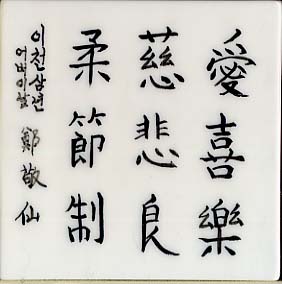 愛喜樂
慈悲良
柔節制
이천삼년
어버이날
鄭敬仙